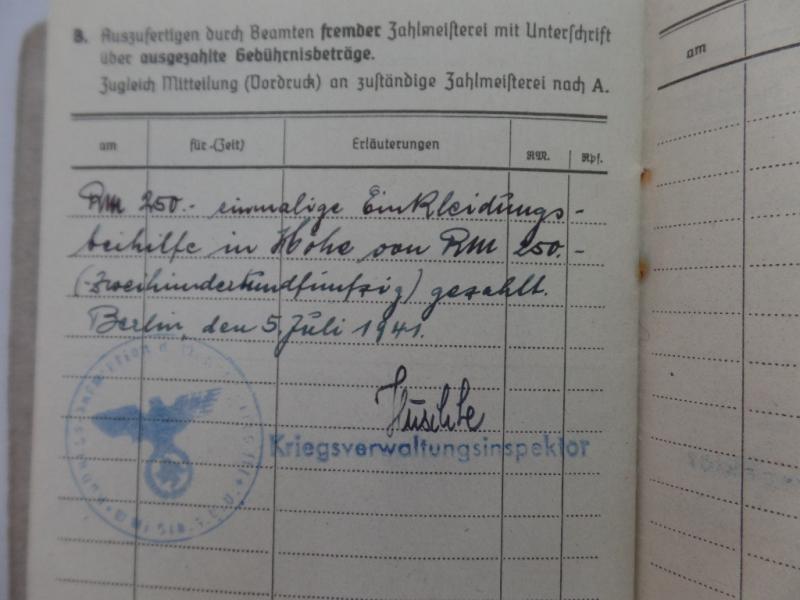 B. Auszufertigen durch Beamten fremder Zahlmeisterei mit Unterschrift
über ausgezahlte Gebührnisbeträge.
Zugleich Mitteilung (Vordruck) an zuständige Zahlmeisterei nach A.
am für (Zeit) Erläuterungen RM. Rpf.
RM 250.- einmalige Einkleidungs-
beihilfe in Höhe von RM 250.-
(-zweihundertundfünfzig) gezahlt.
Berlin, den 5. Juli 1941.
Kriegsverwaltungsinspektor
am